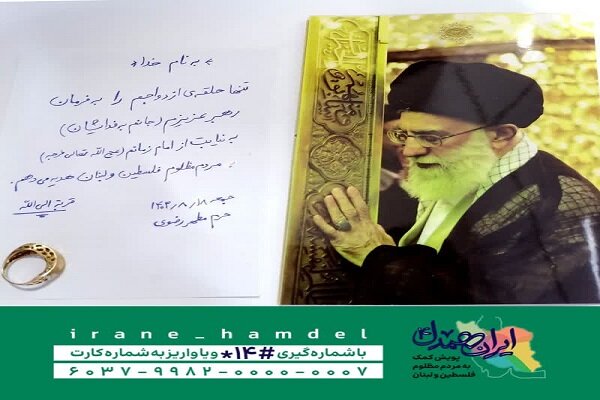 به نام خدا
تنها حلقه‌ی ازدواجم را به فرمان
رهبر عزیزم (جانم به فداشیان)
به نیابت از امام زمانم (عجل الله تعالی فرجه)
به مردم مظلوم فلسطین و لبنان هدیه می‌دهم.
جمعه ۱۴۰۳/۸/۱۸ قربة الی الله
حرم مطهر رضوی
irane_hamdel
با شماره‌گیری #۱۴* و یا واریز به شماره کارت
۶۰۳۷-۹۹۸۲-۰۰۰۰-۰۰۰۷
ایران همدل
پویش کمک
به مردم مظلوم
فلسطین و لبنان